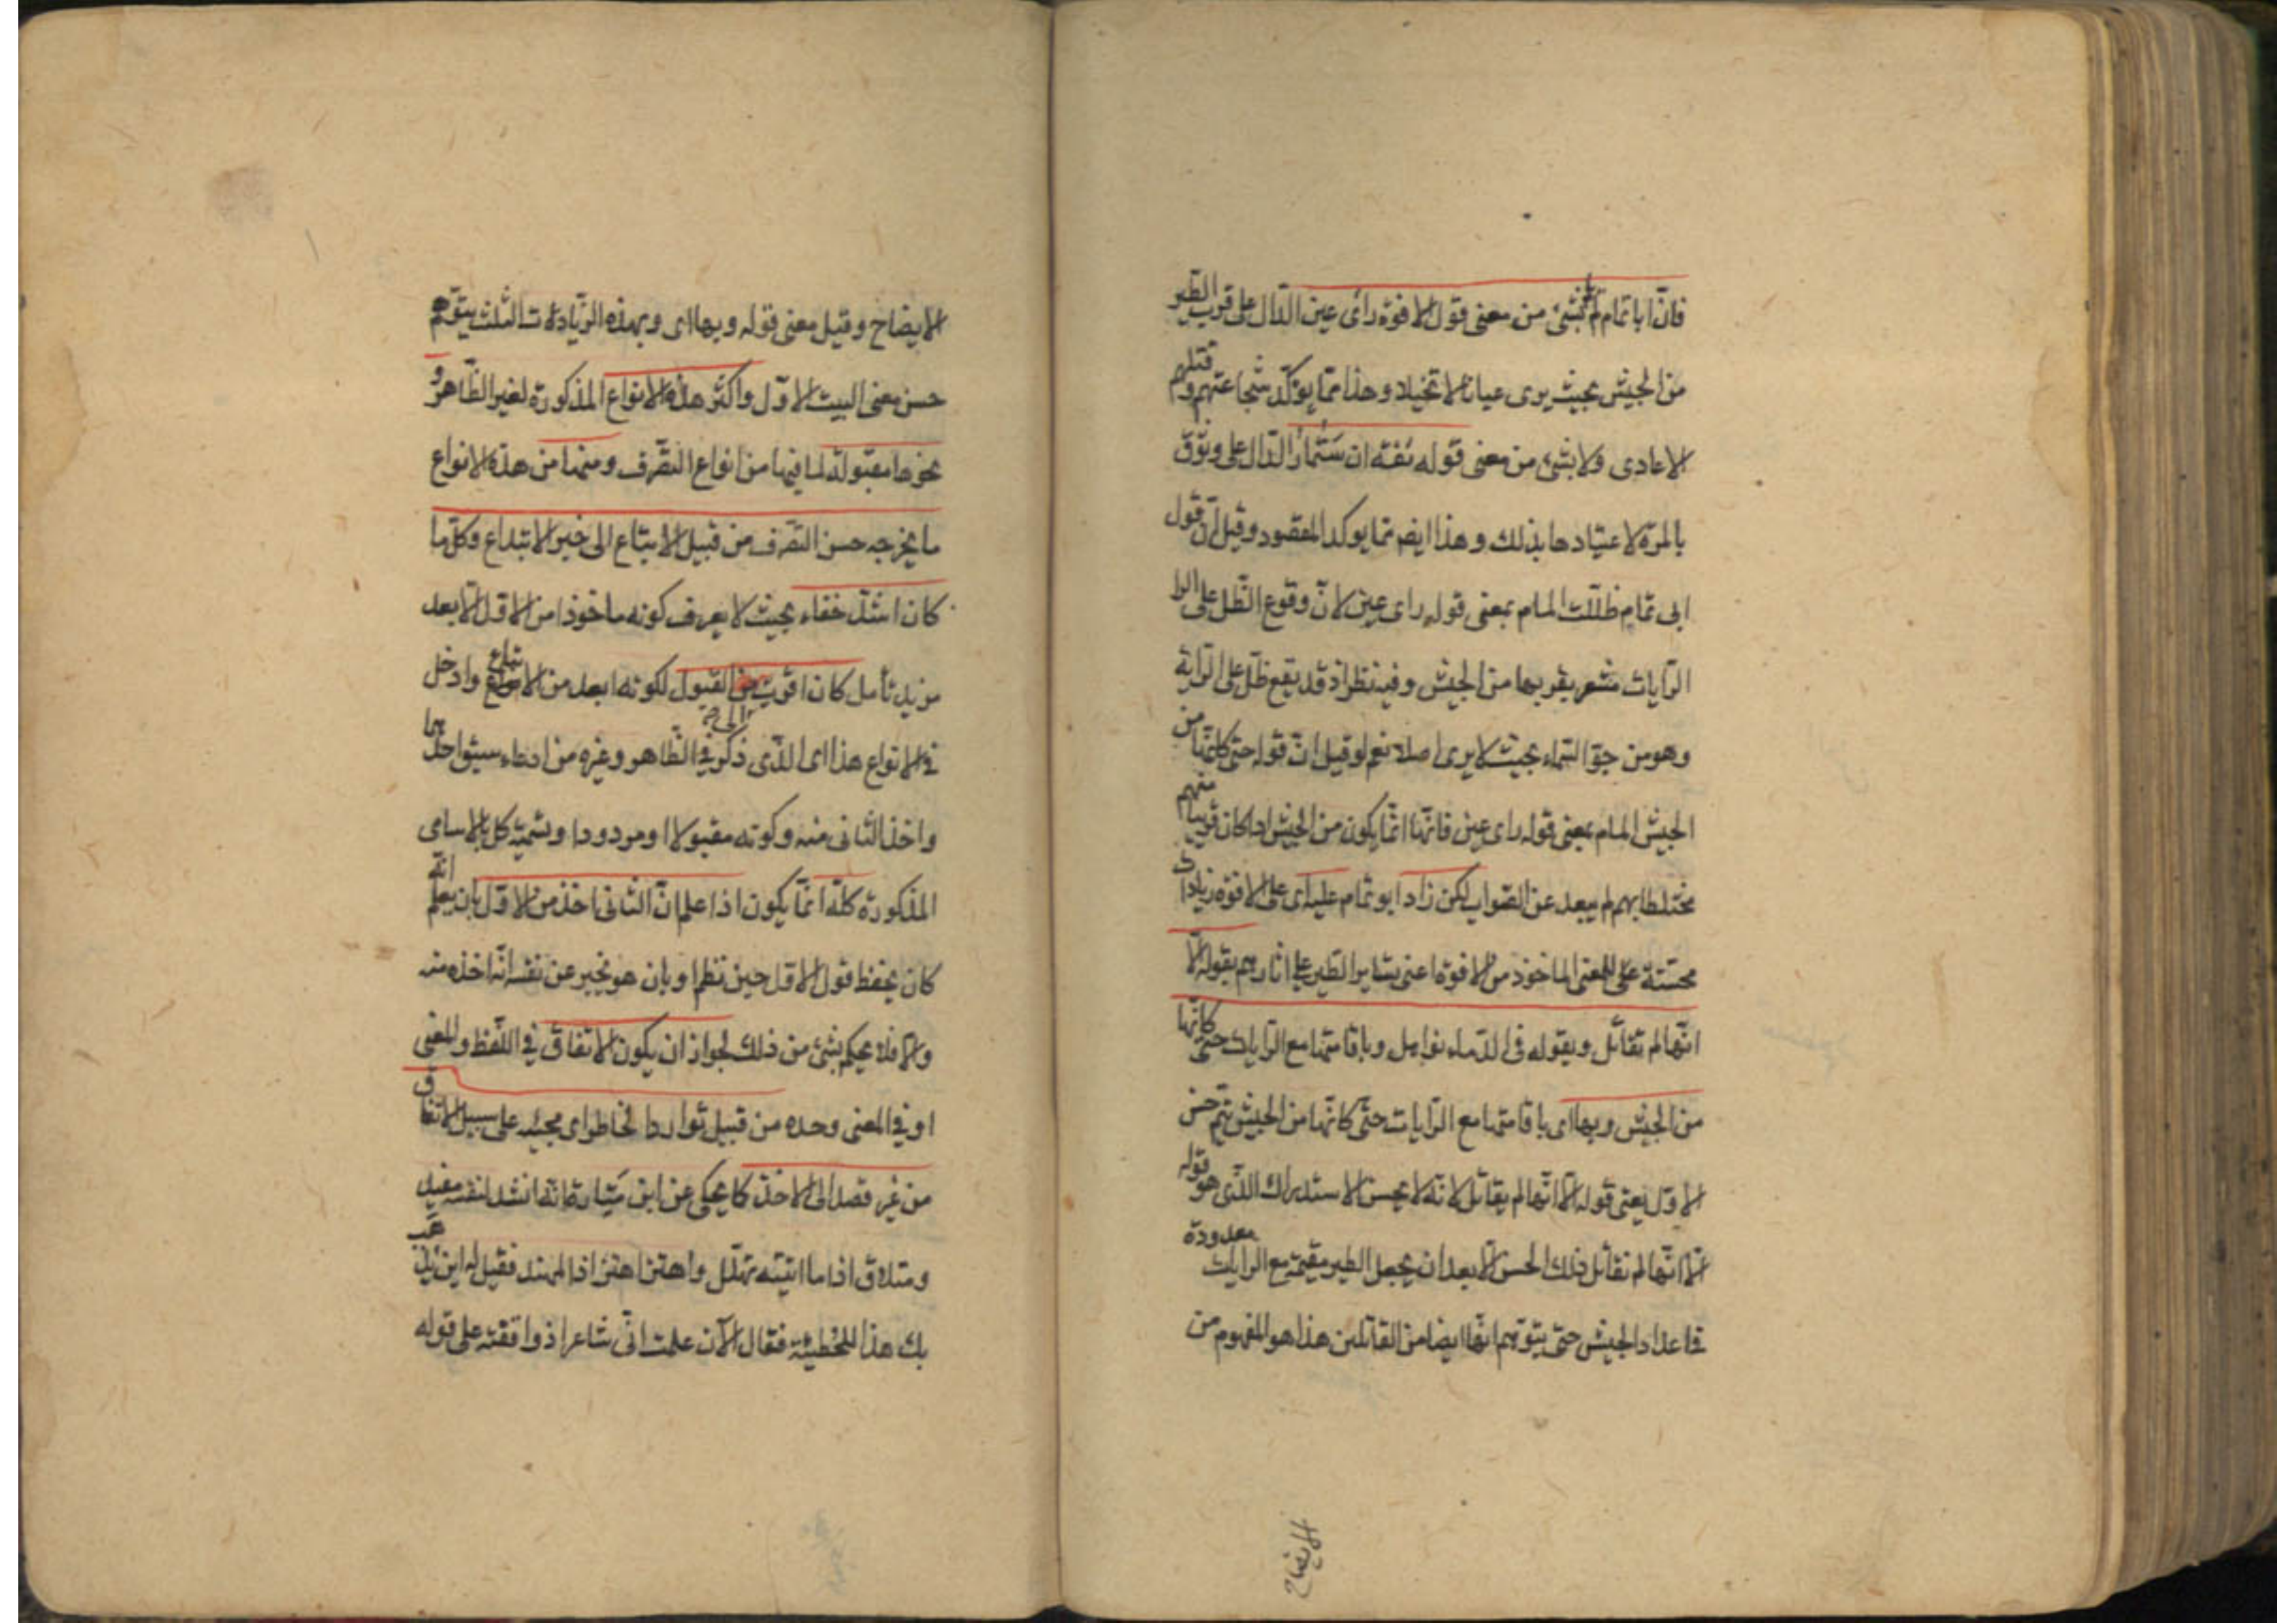 فان ابا تمام لم يلم بشئ من معنى قول الافوه رأى عين الدال على قرب الطير
من الجيش بحيث يرى عيانا لا تخيلا وهذا مما يؤكد شجاعتهم وقتلهم
الاعادى ولا بشئ من معنى قوله ثقة ان ستمار الدال على وثوق
بالمرة لاعتيادها بذلك وهذا ايضا مما يوكد المقصود وقيل ان قول
ابى تمام ظللت المام بمعنى قوله راى عين لان وقوع الظل على الرا
الرايات مشعر بقربها من الجيش وفيه نظر اذ قد يقع ظل على الراية
وهو من جو السماء بحيث لا يرى اصلا نعم لو قيل ان قوله حتى كانها من
الجيش المام بمعنى قوله راى عين فانها انما يكون من الجيش اذا كان قريبا منهم
مختلطا بهم لم يبعد عن الصواب لكن زاد ابو تمام عليه اى على الافوه زيادات
محسنة على المعنى الماخوذ من الافوه اعنى تساير الطير على اثارهم بقوله الا
انها لم تقاتل وبقوله فى الدماء نواهل وباقامتها مع الرايات حتى كانها
من الجيش وبها اى باقامتها مع الرايات حتى كانها من الجيش يتم حسن
الاول يعنى قوله الا انها لم يقاتل لانه لا يحسن الاستدراك الذى هو قوله
الا انها لم تقاتل ذلك الحسن الا بعد ان يجعل الطير مقيمة مع الرايات معدودة
فى اعداد الجيش حتى يتوهم انها ايضا من القاتلين هذا هو المفهوم من
الايضاح
الايضاح وقيل معنى قوله وبها اى وبهذه الزيادات الثلث يتم
حسن معنى البيت الاول واكثر هذه الانواع المذكورة لغير الظاهر و
نحوها مقبولة لما فيها من انواع التصرف ومنها من هذه الانواع
ما يخرجه حسن التصرف من قبيل الاتباع الى خير الابتداع وكل ما
كان اشد خفاء بحيث لا يعرف كونه ماخوذا من الاول الا بعد
مزيد تأمل كان اقرب الى القبول لكونه ابعد من الاتباع وادخل
فى الابداع هذا اى الذى ذكر فى الظاهر وغيره من ادعاء سبق احدهما
واخذ الثانى منه وكونه مقبولا او مردودا وتسمية كل بالاسامى
المذكورة كله انما يكون اذا علم ان الثانى اخذ من الاول بان يعلم انه
كان يحفظ قول الاول حين نظم او بان هو يخبر عن نفسه انه اخذه منه
والا فلا يحكم بشئ من ذلك لجواز ان يكون الاتفاق فى اللفظ والمعنى
او فى المعنى وحده من قبيل توارد الخاطر اى مجيئه على سبيل الاتفاق
من غير قصد الى الاخذ كما يحكى عن ابن ميادة انه انشد لنفسه مفيد
ومتلاف اذا ما اتيته تهلل واهتز اهتزاز المهند فقيل له اين يذهب
بك هذا للحطيئة فقال الآن علمت انى شاعر اذ وافقته على قوله